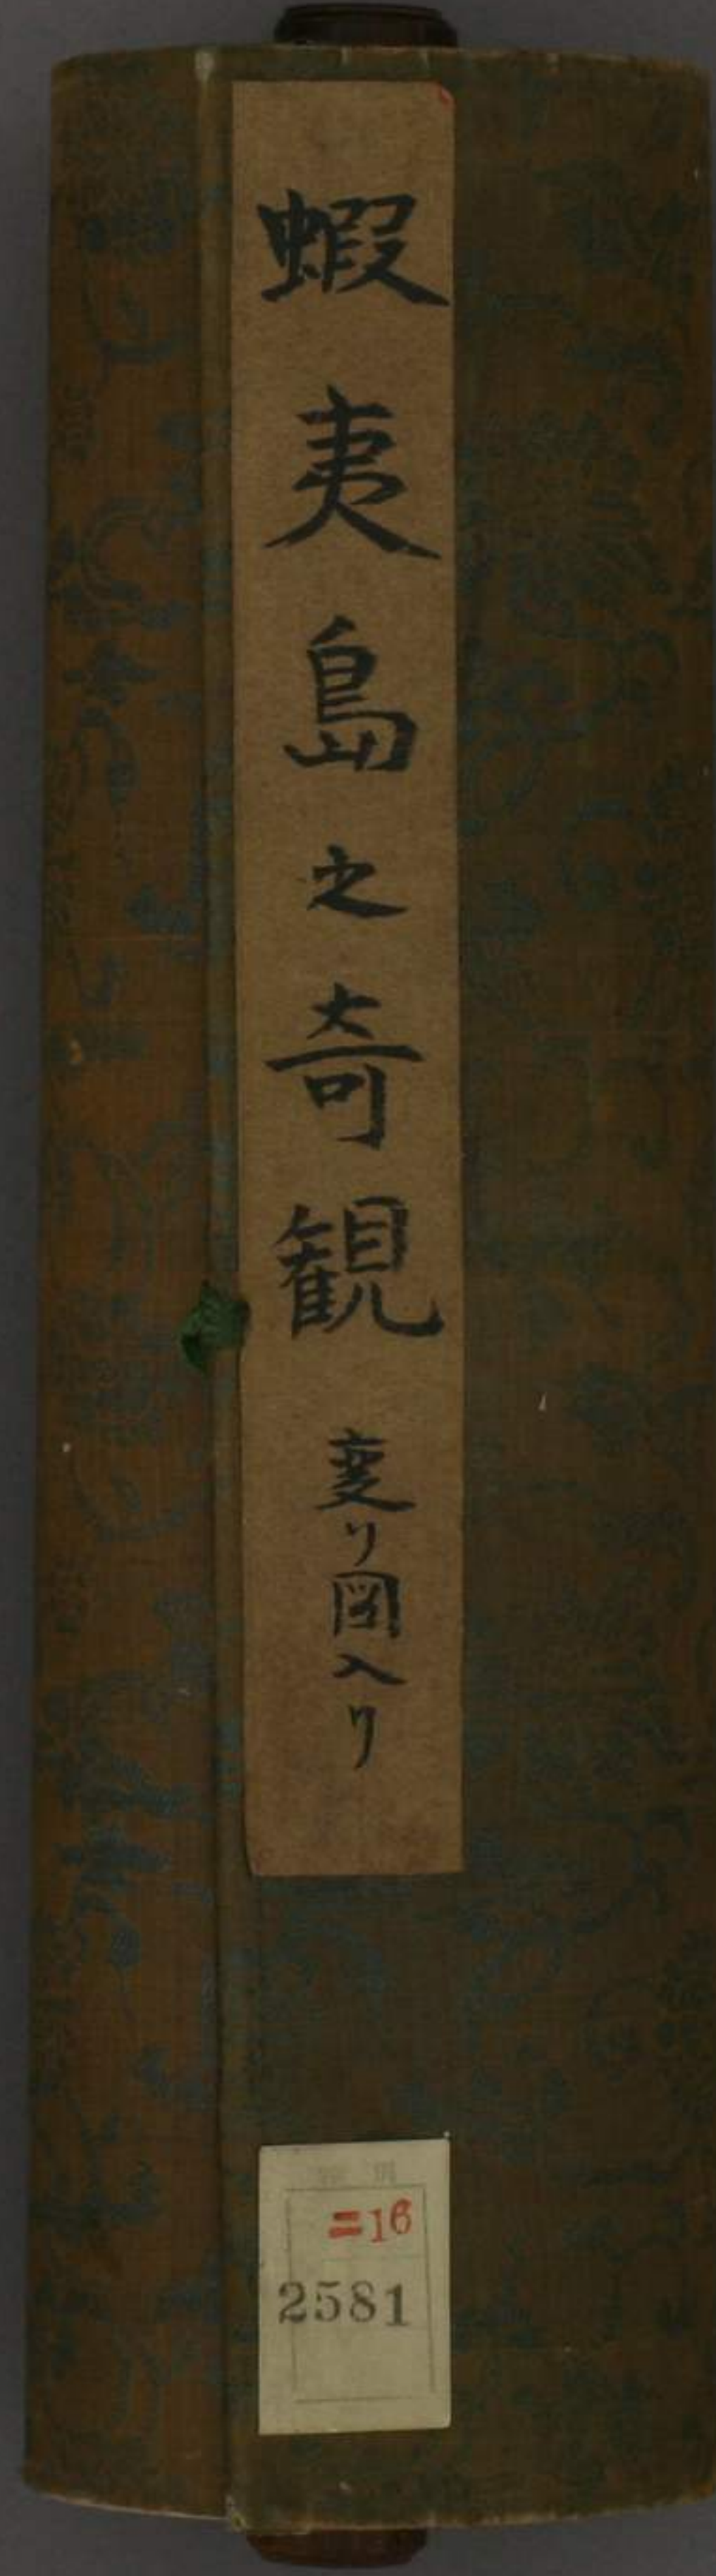 蝦夷島之奇観 変り図入り
特別
ニ16
2581